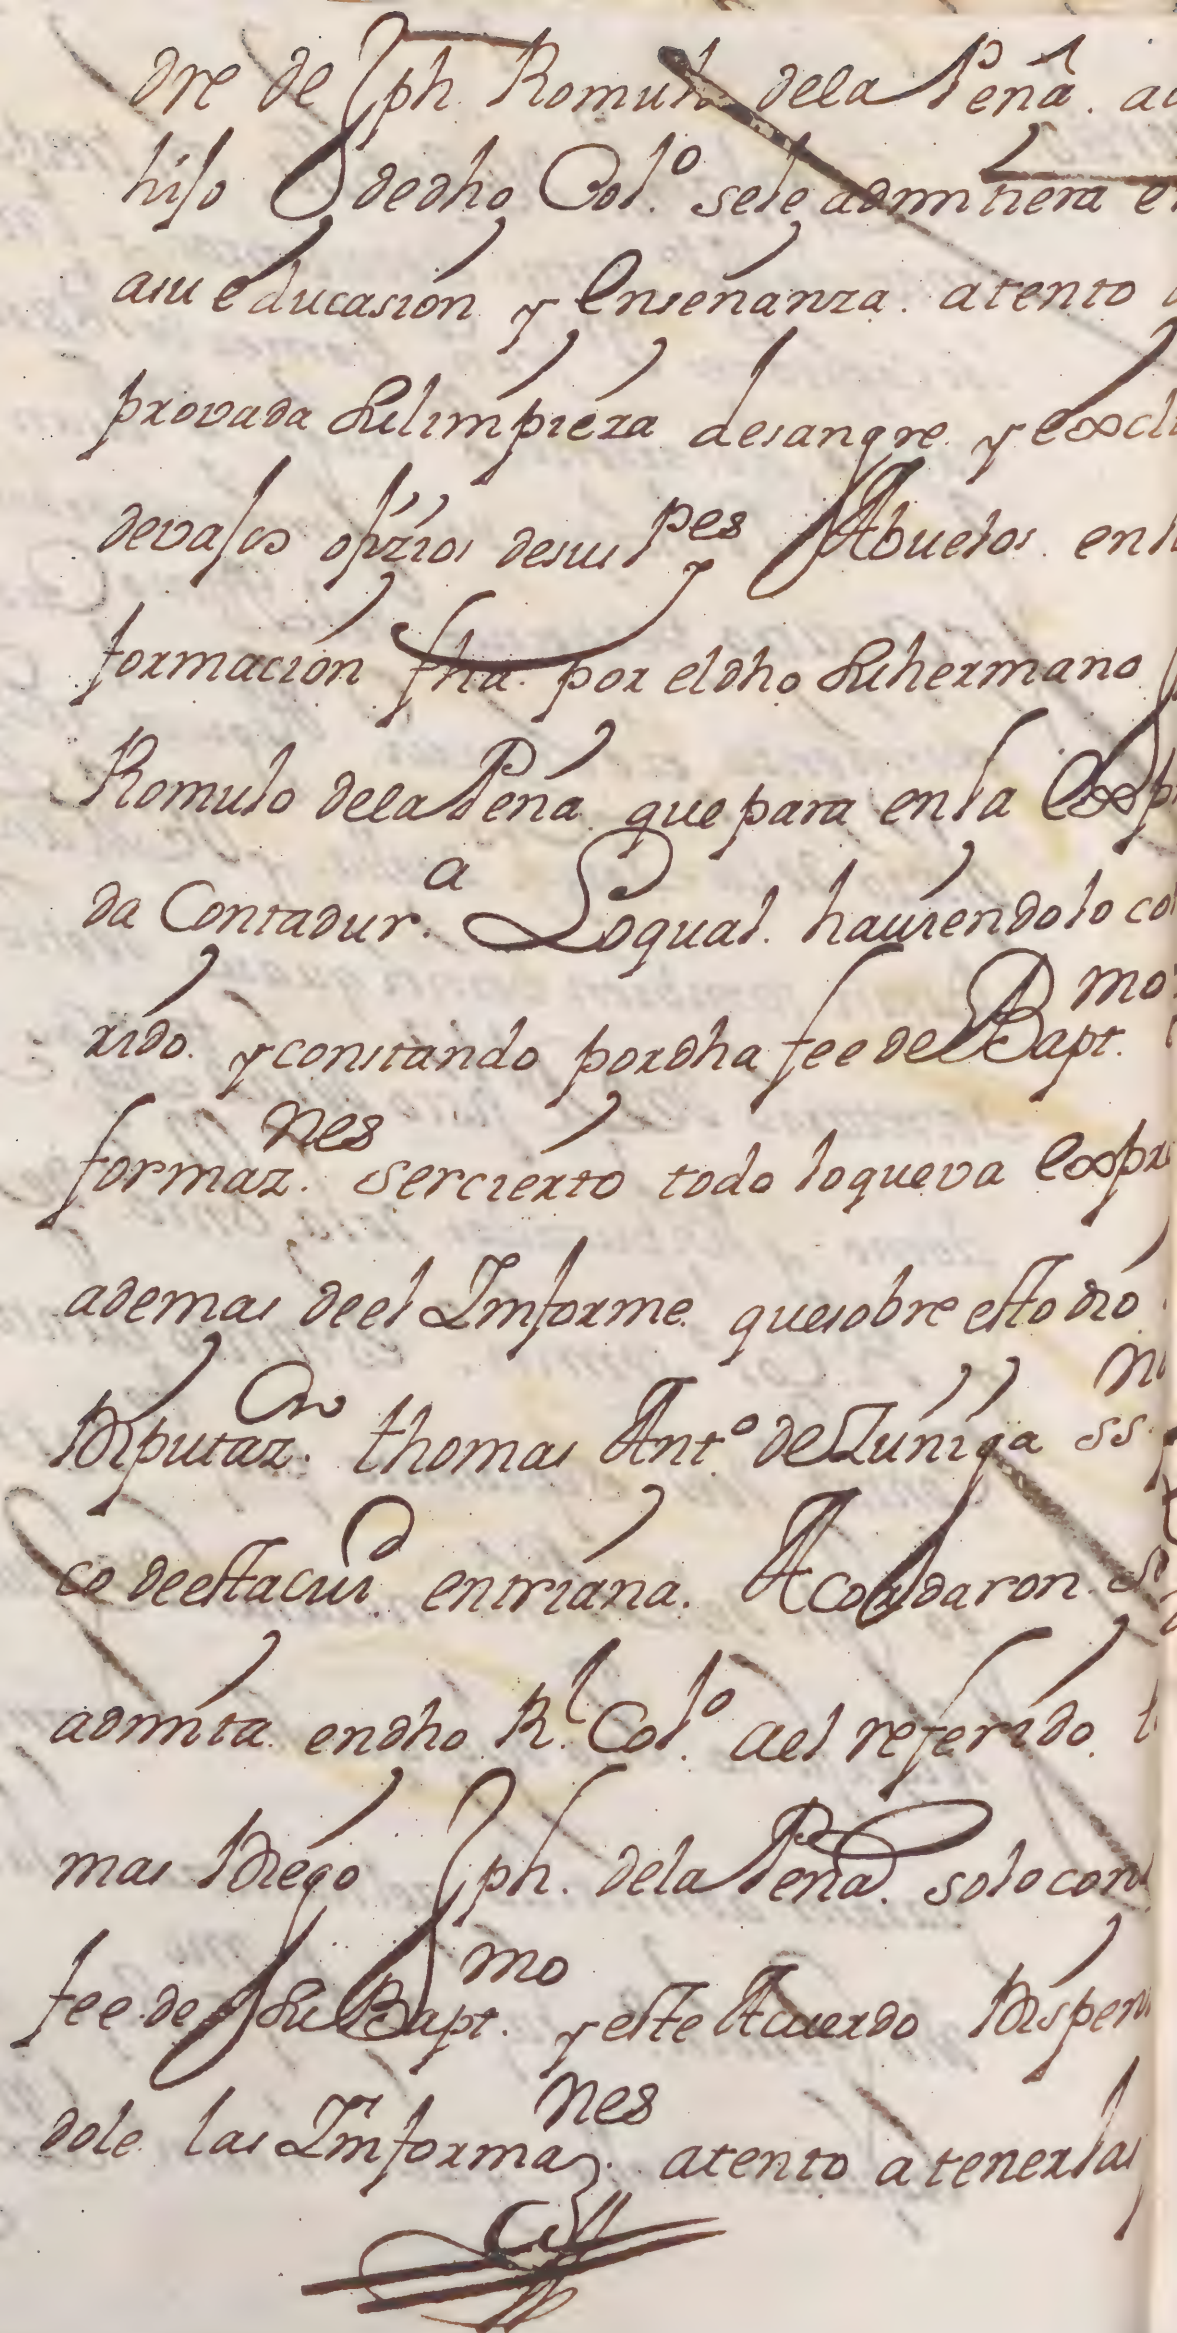 dre de Jph Romulo dela Peña. a
hiſo de dho Col.º sele admitiera e
asu educasion y Enseñanza. atento
provada su limpieza desangre y exclu
devaſos ofizios desus P.es y Abuelos en
formacion fha. por eldho su hermano
Romulo dela Peña que para en la Exp
da Contadur.a Loqual. haviendolo co
rido. y constando por dha fee de Bapt.mo
formaz.nes ser cierto todo loqueva Expr
ademas de el Imforme. que sobre esto dió
Diputaz.on thomas Ant.º de Zuñiga ss.
co de esta ciud. entriana. Acordaron S
admita. endho R.l Col.º a el referido. t
mas Diego Jph. dela Peña. solo con
fee de su Bapt.mo y este Acuerdo Dispen
dole. las Imformaz.nes atento a tenerlas